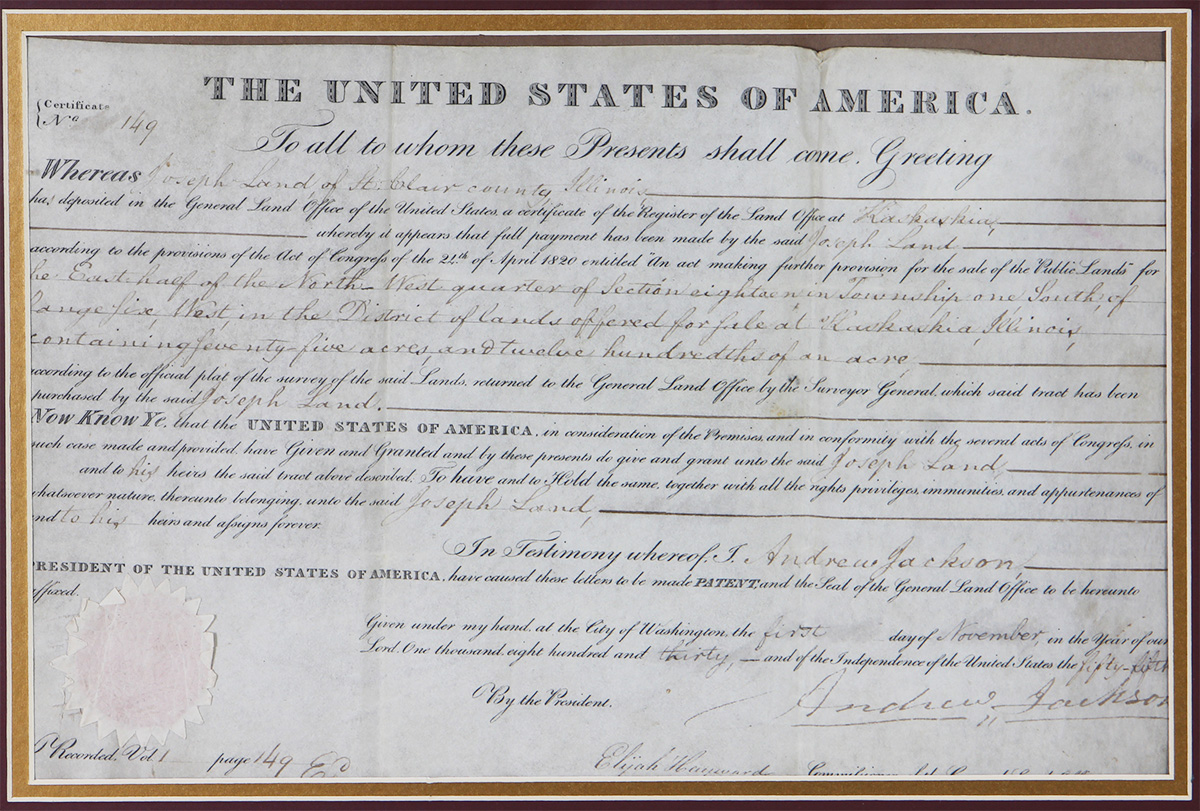 THE UNITED STATES OF AMERICA.
Certificate
No 149
To all to whom these Presents shall come, Greeting
Whereas Joseph Land of St Clair county Illinois,
has deposited in the General Land Office of the United States, a certificate of the Register of the Land Office at Kaskaskia,
whereby it appears that full payment has been made by the said Joseph Land
according to the provisions of the Act of Congress of the 24th of April 1820 entitled "An act making further provision for the sale of the Public Lands" for
he East half of the North-West quarter of Section eighteen in Township one South, of
Range Six, West, in the District of lands offered for sale at Kaskaskia, Illinois,
containing Seventy-five acres, and twelve hundredths of an acre,
according to the official plat of the survey of the said Lands, returned to the General Land Office by the Surveyor General, which said tract has been
purchased by the said Joseph Land.
Now Know Ye, that the UNITED STATES OF AMERICA, in consideration of the Premises, and in conformity with the several acts of Congress, in
such case made and provided, have Given and Granted and by these presents do give and grant unto the said Joseph Land,
and to his heirs the said tract above described. To have and to Hold the same, together with all the rights privileges, immunities, and appurtenances of
whatsoever nature, thereunto belonging, unto the said Joseph Land,
and to his heirs and assigns forever.
In Testimony whereof, I, Andrew Jackson,
PRESIDENT OF THE UNITED STATES OF AMERICA, have caused these letters to be made PATENT, and the Seal of the General Land Office to be hereunto
affixed.
Given under my hand, at the City of Washington, the first day of November, in the Year of our
Lord, One thousand eight hundred and thirty, — and of the Independence of the United States the fifty-fifth
By the President. Andrew Jackson
Recorded, Vol. 1 page 149 Elijah Hayward